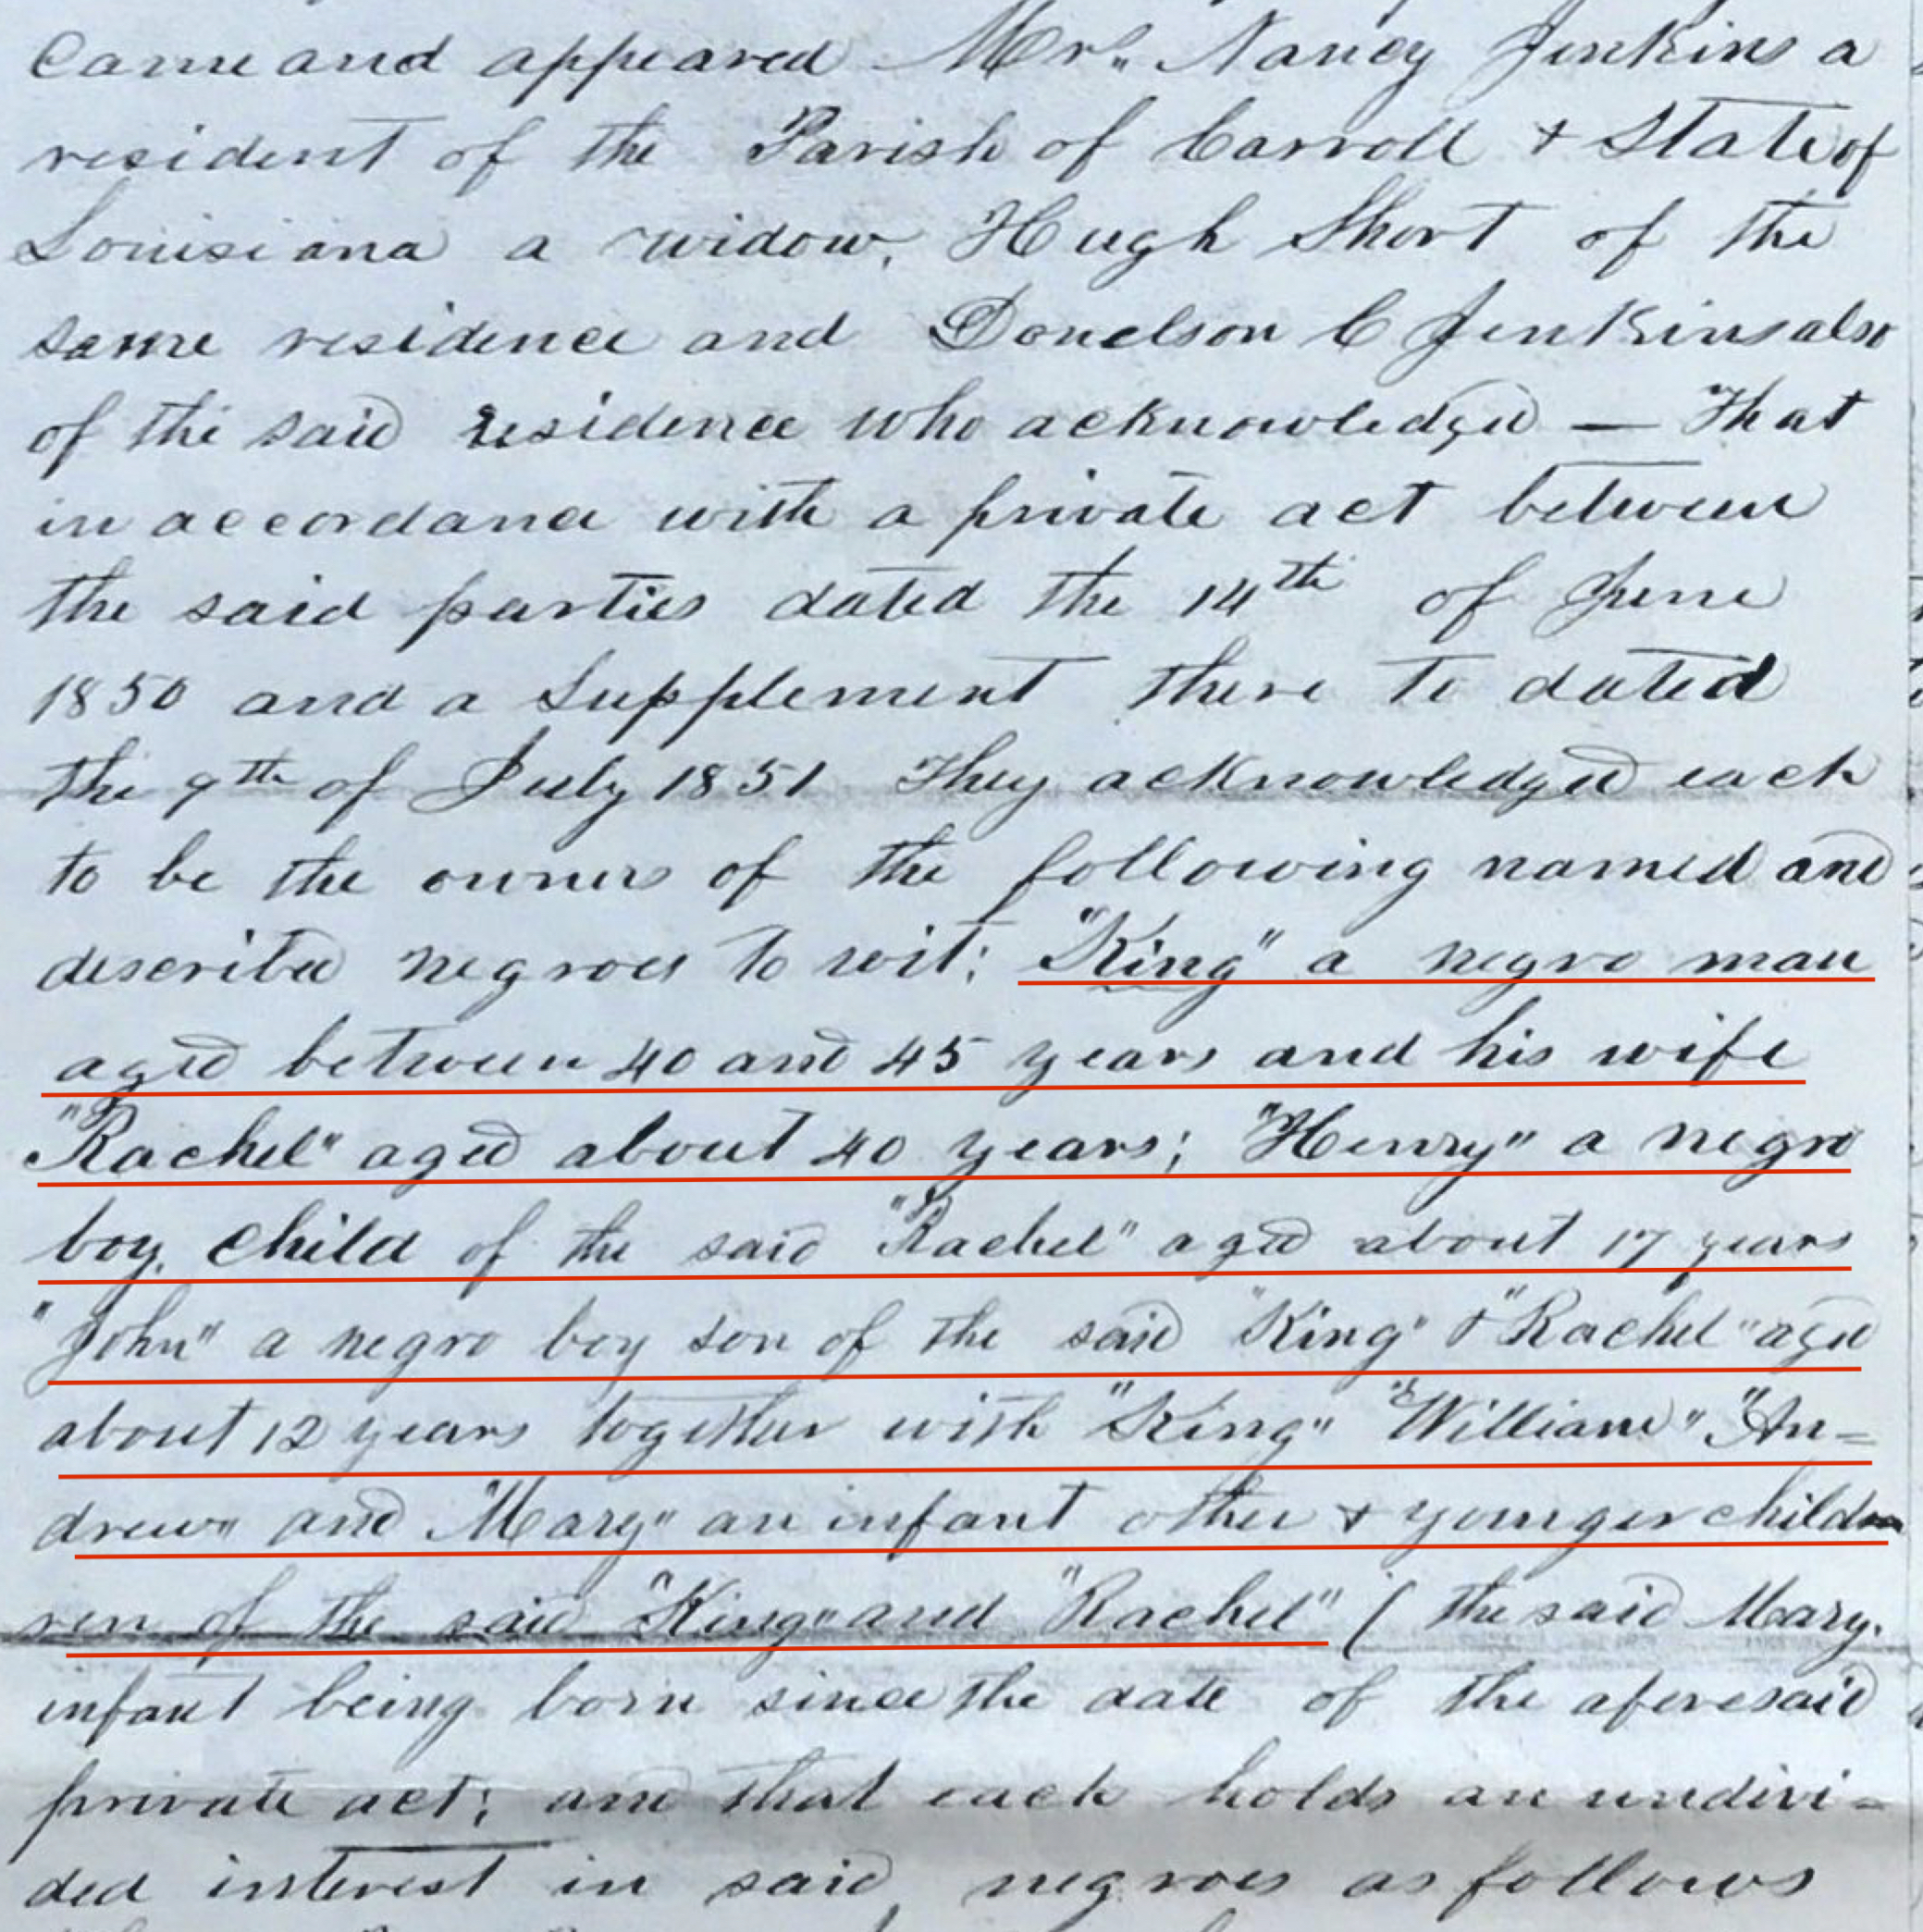 Came and appeared Mrs. Nancy Jenkins a
resident of the Parish of Carroll + State of
Louisiana a widow, Hugh Short of the
same residence and Donelson C Jenkins also
of the said residence who acknowledged — That
in accordance with a private act between
the said parties dated the 14th of June
1850 and a Supplement there to dated
the 9th of July 1851 They acknowledged each
to be the owners of the following named and
described negroes to wit: "King" a negro man
aged between 40 and 45 years and his wife
"Rachel" aged about 40 years; "Henry" a negro
boy, child of the said "Rachel" aged about 17 years
"John" a negro boy son of the said "King" & "Rachel" aged
about 12 years together with "King" "William" "An=
drew" and "Mary" an infant other + younger child
ren of the said "King" and "Rachel" ( the said Mary,
infant being born since the date of the aforesaid
private act; and that each holds an undivi=
ded interest in said negroes as follows